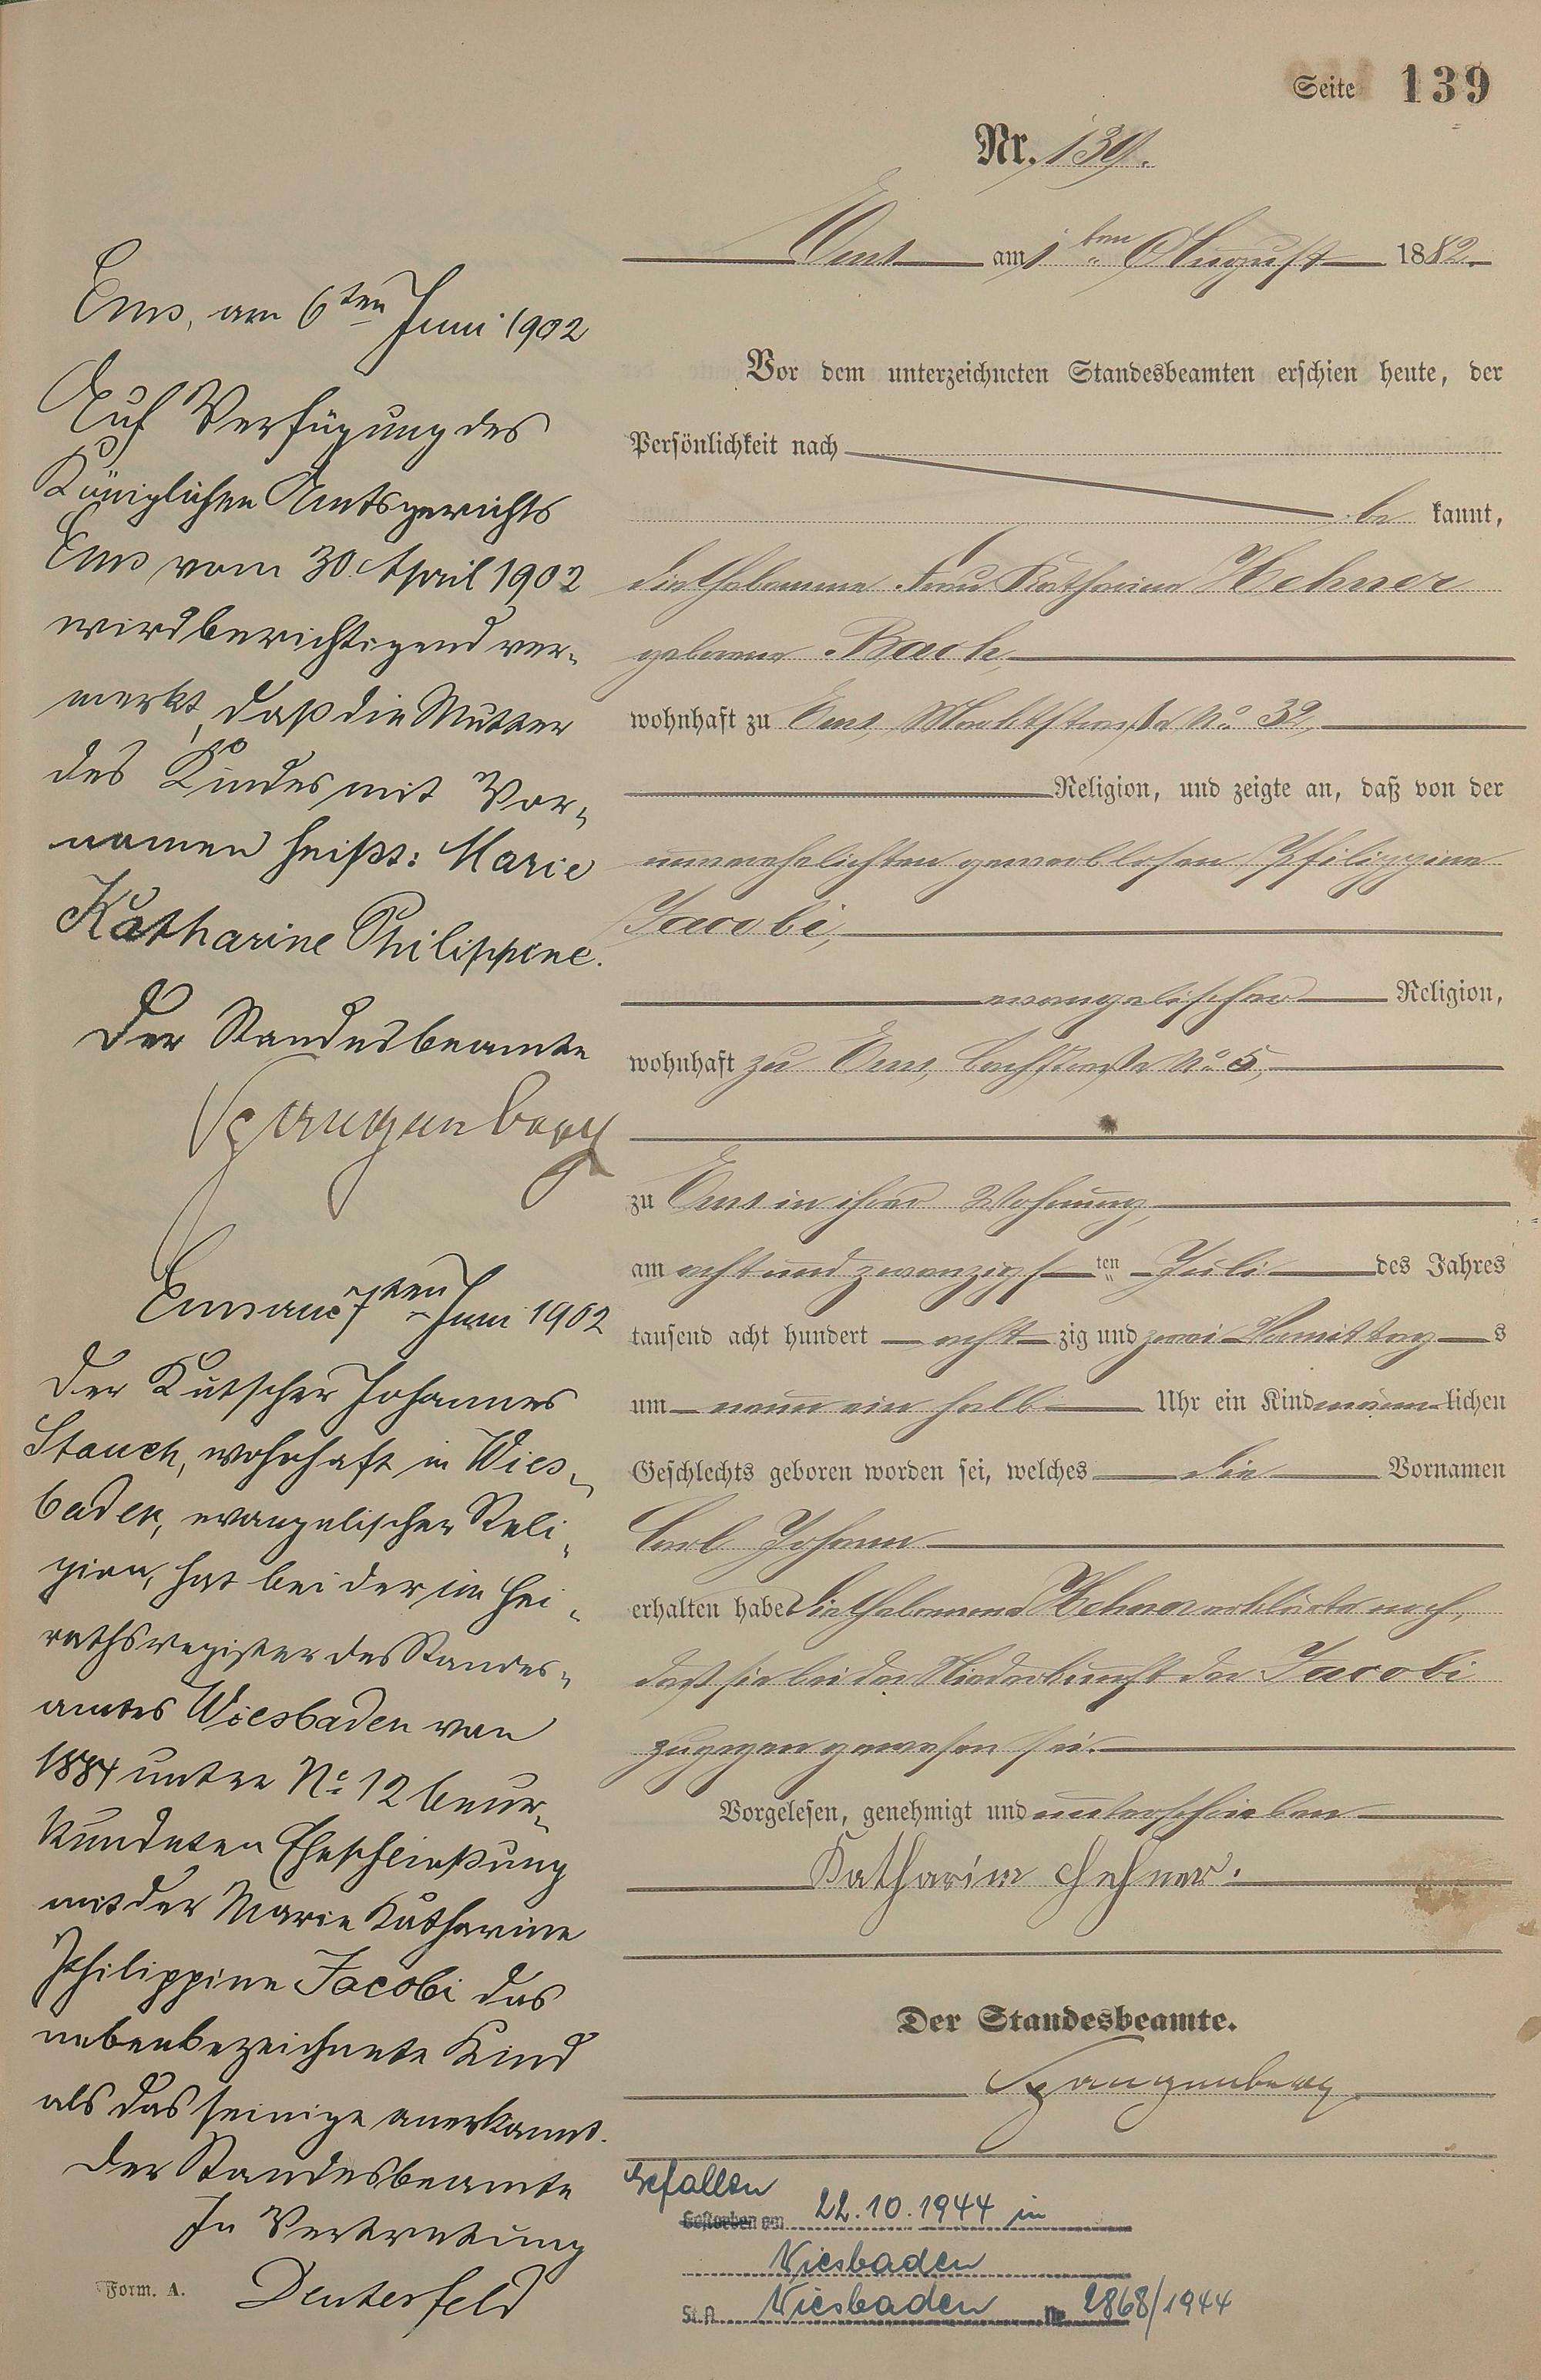 Seite 139
Nr. 139.
Ems am 1ten August 1882.
Vor dem unterzeichneten Standesbeamten erschien heute, der
Persönlichkeit nach
be kannt,
die Hebamme Frau Katharina Hehner
geborene Bach,
wohnhaft zu Ems, Marktstraße No. 32,
Religion, und zeigte an, daß von der
unverehelichten gewerblosen Philippine
Jacobi,
evangelischer Religion,
wohnhaft zu Ems, Bachstraße No. 5,
zu Ems in ihrer Wohnung,
am acht und zwanzigsten Juli des Jahres
tausend acht hundert acht zig und zwei Vormittags
um neun ein halb Uhr ein Kind männlichen
Geschlechts geboren worden sei, welches die Vornamen
Carl Johann
erhalten habe Die Hebamme Hehner erklärte noch,
daß sie bei der Niederkunft der Jacobi
zugegen gewesen sei.
Vorgelesen, genehmigt und unterschrieben
Katharine Hehner.
Der Standesbeamte.
Spangenberg
Ems, am 6ten Juni 1902
Auf Verfügung des
Königlichen Amtsgerichts
Ems vom 30. April 1902
wird berichtigend ver-
merkt, daß die Mutter
des Kindes mit Vor-
namen heißt: Marie
Katharine Philippine.
Der Standesbeamte
Spangenberg
Ems am 7ten Juni 1902
Der Kutscher Johannes
Stauch, wohnhaft in Wies-
baden, evangelischer Reli-
gion, hat bei der im Hei-
rathsregister des Standes-
amtes Wiesbaden von
1884 unter No. 12 beur-
kundeten Eheschließung
mit der Marie Katharine
Philippine Jacobi das
nebenbezeichnete Kind
als das seinige anerkannt.
Der Standesbeamte
In Vertretung
Deuterfeld
Form. A.
Gefallen
Gestorben am 22.10.1944 in
Wiesbaden
St.A. Wiesbaden Nr. 2868/1944